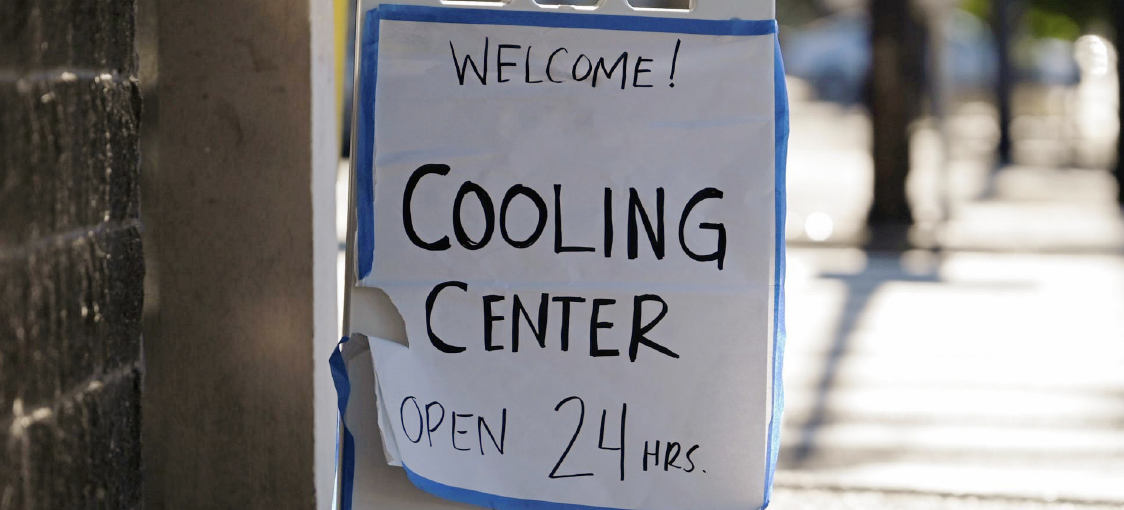 WELCOME!
COOLING
CENTER
OPEN 24 HRS.